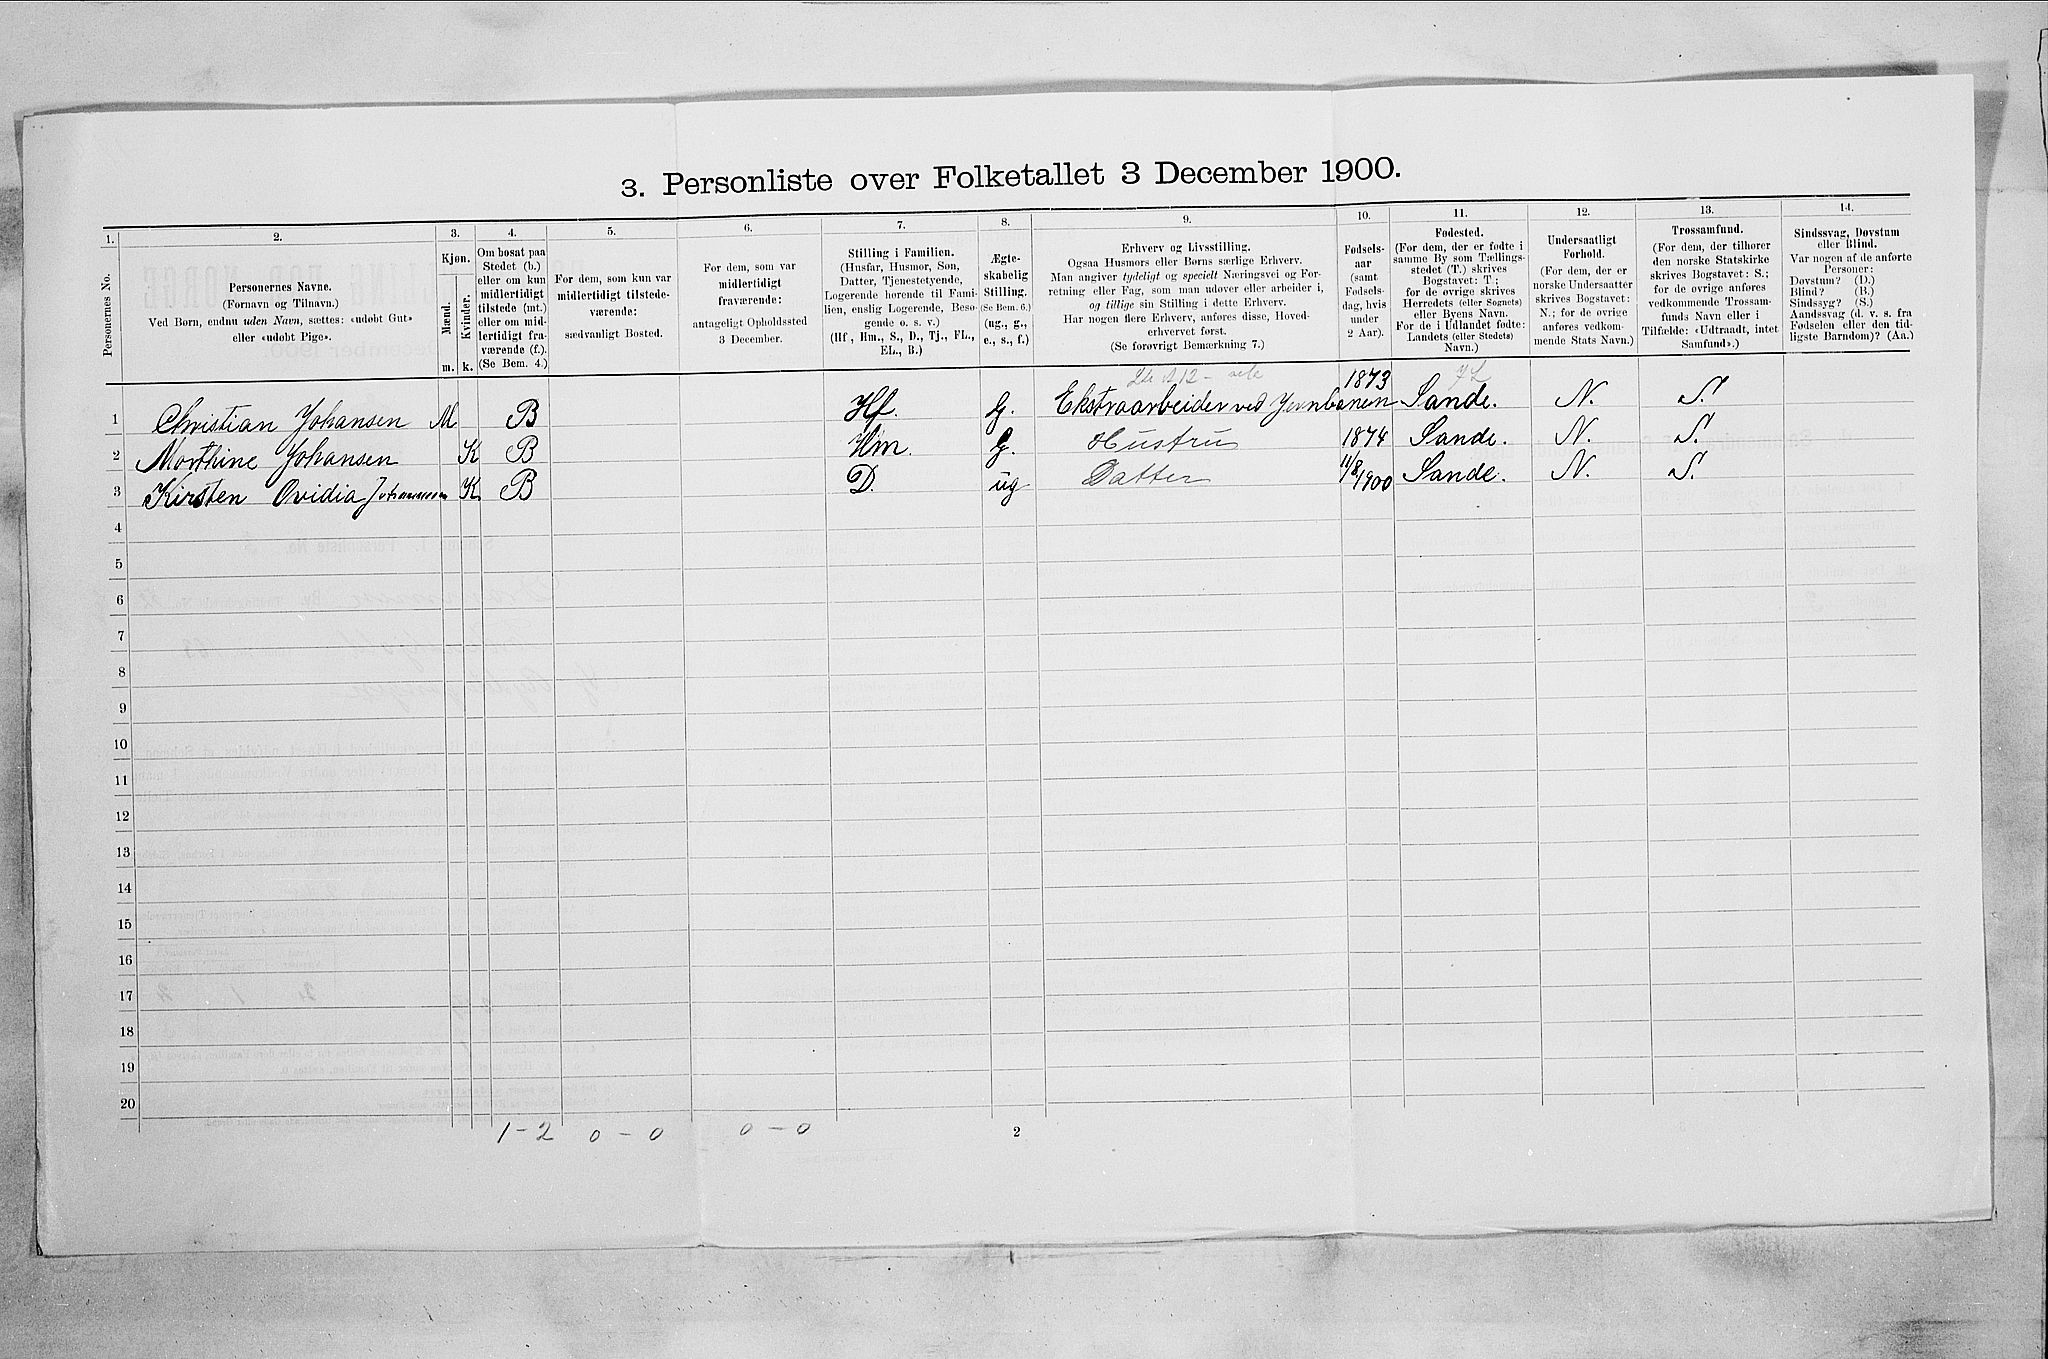 3. Personliste over Folketallet 3 December 1900.
1. 2. 3. 4. 5. 6. 7. 8. 9. 10. 11. 12. 13. 14.
Personernes No.
Personernes Navne.
(Fornavn og Tilnavn.)
Ved Børn, endnu uden Navn, sættes: «udøbt Gut»
eller «udøbt Pige».
Kjøn.
Mænd.
Kvinder.
m. k.
Om bosat paa
Stedet (b.)
eller om kun
midlertidigt
tilstede (mt.)
eller om mid-
lertidigt fra-
værende (f.).
(Se Bem. 4.)
For dem, som kun var
midlertidigt tilstede-
værende:
sædvanligt Bosted.
For dem, som var
midlertidigt
fraværende:
antageligt Opholdssted
3 December.
Stilling i Familien.
(Husfar, Husmor, Søn,
Datter, Tjenestetyende,
Logerende hørende til Fami-
lien, enslig Logerende, Besø-
gende o. s. v.)
(Hf., Hm., S., D., Tj., FL.,
EL., B.)
Ægte-
skabelig
Stilling.
(Se Bem. 6.)
(ug., g.,
e., s., f.)
Erhverv og Livsstilling.
Ogsaa Husmors eller Børns særlige Erhverv.
Man angiver tydeligt og specielt Næringsvei og For-
retning eller Fag, som man udøver eller arbeider i,
og tillige sin Stilling i dette Erhverv.
Har nogen flere Erhverv, anføres disse, Hoved-
erhvervet først.
(Se forøvrigt Bemærkning 7.)
Fødsels-
aar
(samt
Fødsels-
dag, hvis
under
2 Aar).
Fødested.
(For dem, der er fødte i
samme By som Tællings-
stedet (T.) skrives
Bogstavet: T.;
for de øvrige skrives
Herredets (eller Sognets)
eller Byens Navn.
For de i Udlandet fødte:
Landets (eller Stedets)
Navn.)
Undersaatligt
Forhold.
(For dem, der er
norske Undersaatter
skrives Bogstavet:
N.; for de øvrige
anføres vedkom-
mende Stats Navn.)
Trossamfund.
(For dem, der tilhører
den norske Statskirke
skrives Bogstavet: S.;
for de øvrige anføres
vedkommende Trossam-
funds Navn eller i
Tilfælde: «Udtraadt, intet
Samfund».)
Sindssvag, Døvstum
eller Blind.
Var nogen af de anførte
Personer:
Døvstum? (D.)
Blind? (B.)
Sindssyg? (S.)
Aandssvag (d. v. s. fra
Fødselen eller den tid-
ligste Barndom)? (Aa.)
1 Christian Johansen M B Hf. G. Ekstraarbeider ved Jernbanen 1873 Sande. N. S.
2 Marthine Johansen K B Hm. G. Hustru 1874 Sande. N. S.
3 Kirsten Ovidia Johannesen K B D. ug Datter 11/8 1900 Sande. N. S.
4
5
6
7
8
9
10
11
12
13
14
15
16
17
18
19
20
1-2 0-0 0-0 2